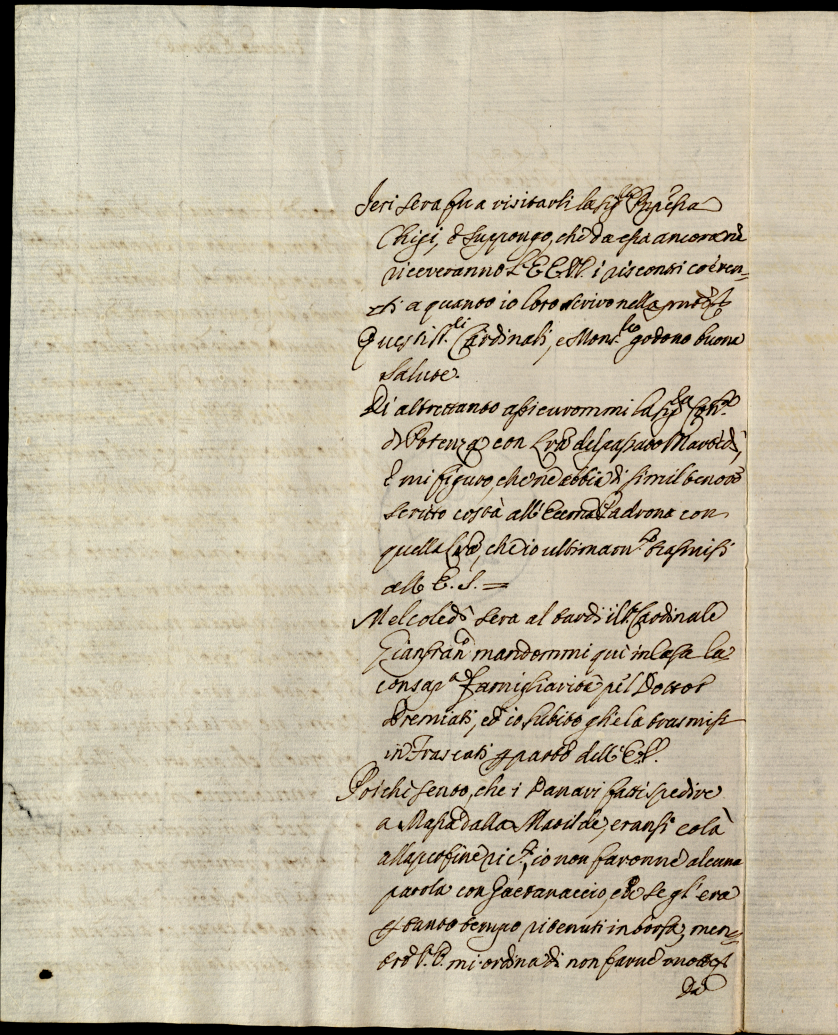 Ieri sera fu a visitarli la Sig.ra Pnpessa
Chigi, e suppongo, che da essa ancora ne
riceveranno L'EEM. i riscontri coeren=
ti a quanto io loro scrivo nella
Questi SS.ri Cardinali, e Mons.re godono buona
salute.
Di altrettanto assicurommi la Sig.ra
di Potenza con Lra del passato Martedì,
E mi figuro, che ne abbia di simil tenore
scritto costà all'Eccma Padrona con
quella Lra, che io ultimam.te trasmisi
all' E. S. =
Melcoledì sera al tardi il S. Cardinale
Gianfran.co mandommi quì in Casa la
consap.a famigliarità p il Dottor
Premiati, ed io subito ghe la trasmisi
in Frascati p parte dell' E.S.
Poichè sento, che i Danari fatti spedire
a Massa dalla Matilde, eransi colà
alla p fine io non faronne alcuna
parola con Gaetanaccio, che se gl' era
p tanto tempo ritenuti in borsa, men=
tre V.E. mi ordina di non farne
Da